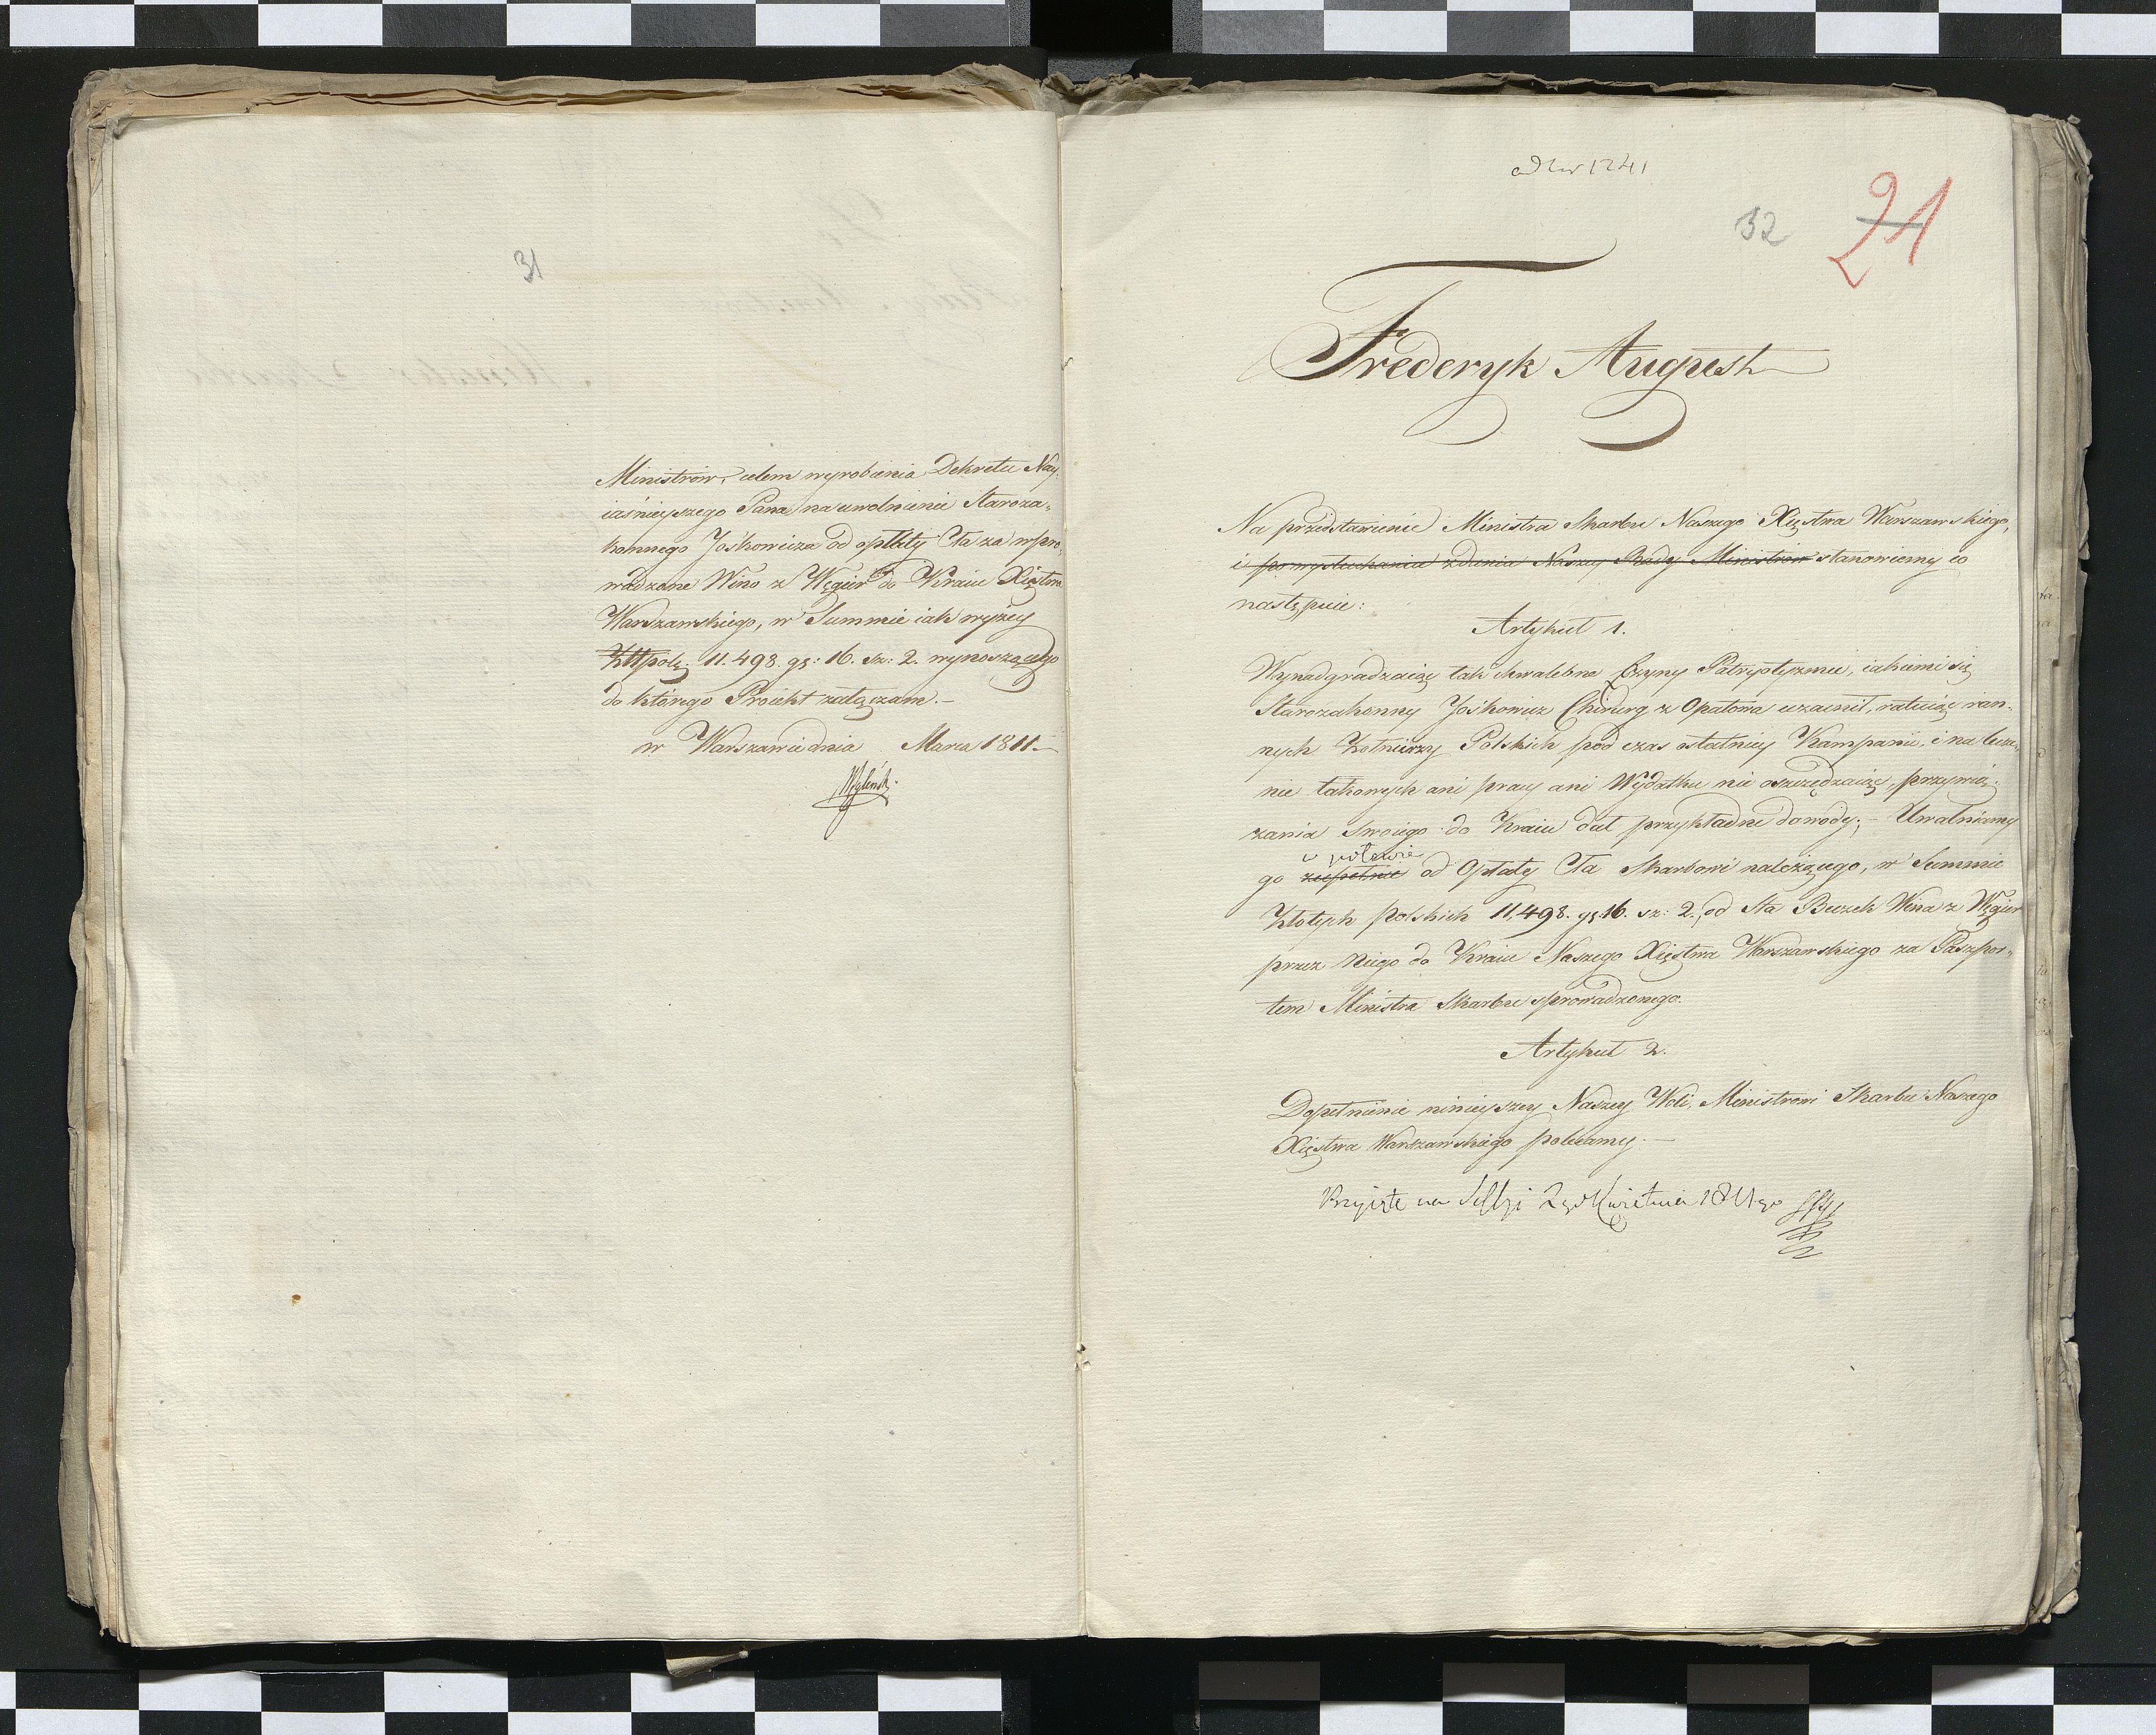 31
Ministrów, celem wyrobienia Dekretu Nay-
iaśnieyszego Pana na uwolnienie Staroza-
konnego Joskowicza od opłaty Cła za wpro-
wadzone Wino z Węgier do Kraiu Xięstwa
Warszawskiego, w Summie iak wyżey
Złtpols: 11.498. gr: 16. sz: 2. wynoszącego
do którego Proiekt załączam.-
w Warszawie dnia Marca 1811.-
ad Nr 1241
32 21
Frederyk August
Na przedstawienie Ministra Skarbu Naszego Xięstwa Warszawskiego,
i po wysłuchaniu zdania Naszey Rady Ministrów stanowiemy co
następuie:
Artykuł 1.
Wynadgradzaiąc tak chwalebne Czyny Patryotyzmu, iakiemi się
Starozakonny Jośkowicz Chirurg z Opatowa uzacnił, ratuiąc ran-
nych Żołnierzy Polskich pod czas ostatniey Kampanii, i na lecze-
nie takowych ani pracy ani Wydatku nie oszczędzaiąc, przywią-
zania swoiego do Kraiu dał przykładne dowody;- Uwalniamy
w połowie
go zupełnie od Opłaty Cła Skarbowi należącego, w Summie
Złotych polskich 11,498. gr: 16. sz: 2., od Sta Beczek Wina z Węgier
przez Niego do Kraiu Naszego Xięstwa Warszawskiego za Paszpor-
tem Ministra Skarbu sprowadzonego.
Artykuł 2.
Dopełnienie ninieyszey Naszey Woli, Ministrowi Skarbu Naszego
Xięstwa Warszawskiego polecamy.-
Przyięte na Sessyi 2go Kwietnia 1811go